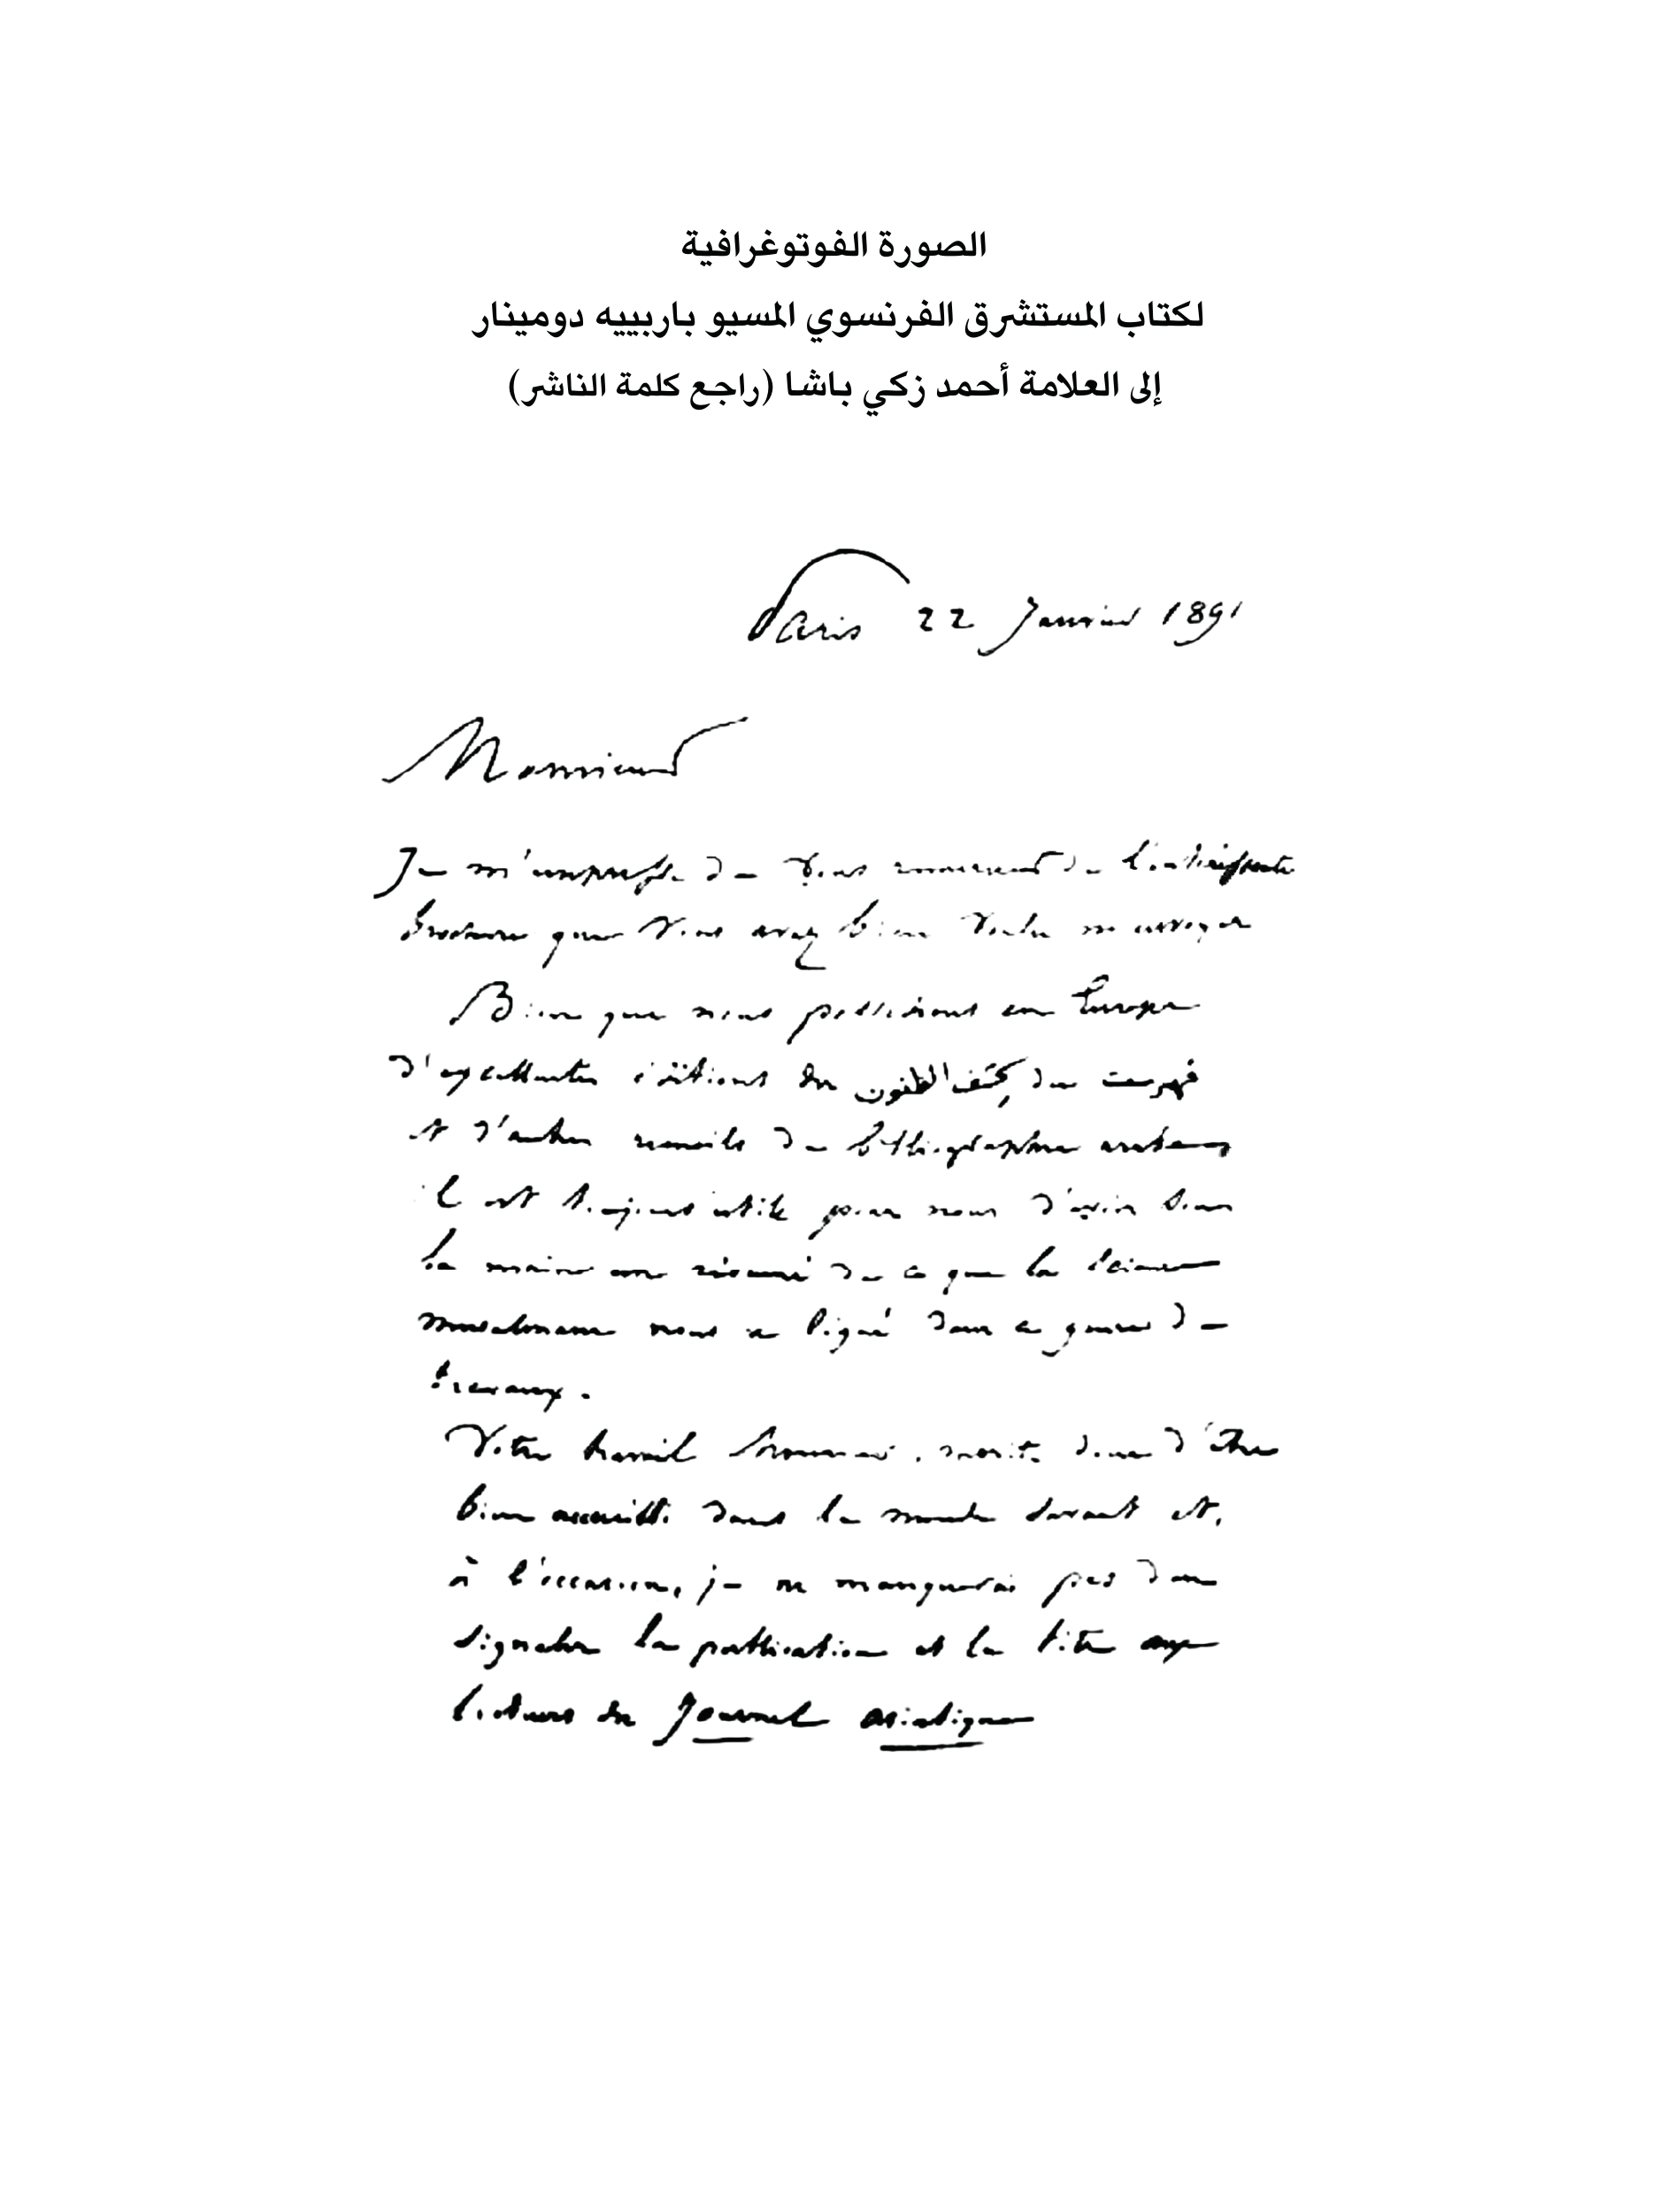 الصورة الفوتوغرافية
لكتاب المستشرق الفرنسوي المسيو باربييه دومينار
إلى العلامة أحمد زكي باشا (راجع كلمة الناشر)
Paris 22 Janvier 1891
Monsieur
Je m'empresse de vous remercier de l'intéressante
brochure que vous avez bien voulu m'envoyer
Bien que nous possédions en Europe
d'excellentes éditions du كشف الظنون, du فهرست
et d'autres recueils de bibliographie arabe,
il est toujours utile pour nous d'avoir sous
la main un résumé de ce que la science
musulmane nous a légué dans ce genre de
travaux.
Votre travail mérite donc d'être
bien accueilli dans le monde savant et,
à l'occasion, je ne manquerai pas d'en
signaler la publication et le titre aux
lecteurs du Journal asiatique